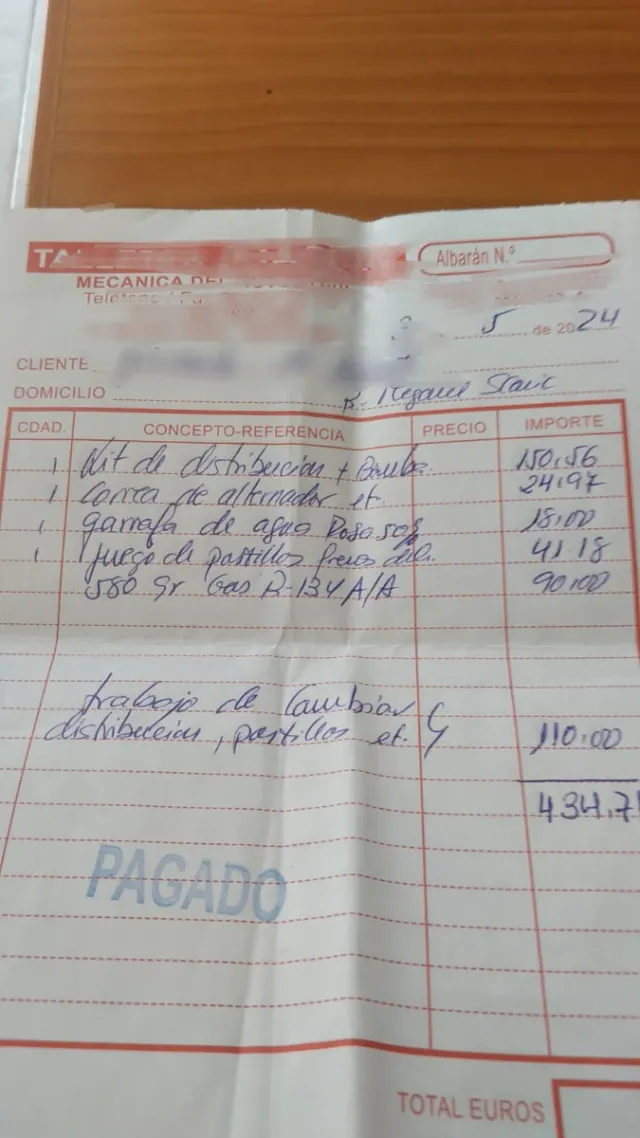 Albarán N.º
MECANICA DEL
5 de 2024
CLIENTE
DOMICILIO
R. Megane Scenic
CDAD. CONCEPTO-REFERENCIA PRECIO IMPORTE
1 Kit de distribucion + Bomba 150,56
1 Correa de alternador et. 24,97
1 garrafa de agua Rosa 50% 18,00
1 juego de pastillos frenos del. 41,18
580 gr Gas R-134 A/A 90,00
trabajo de Cambiar
distribucion, pastillos et. 110,00
434,71
PAGADO
TOTAL EUROS